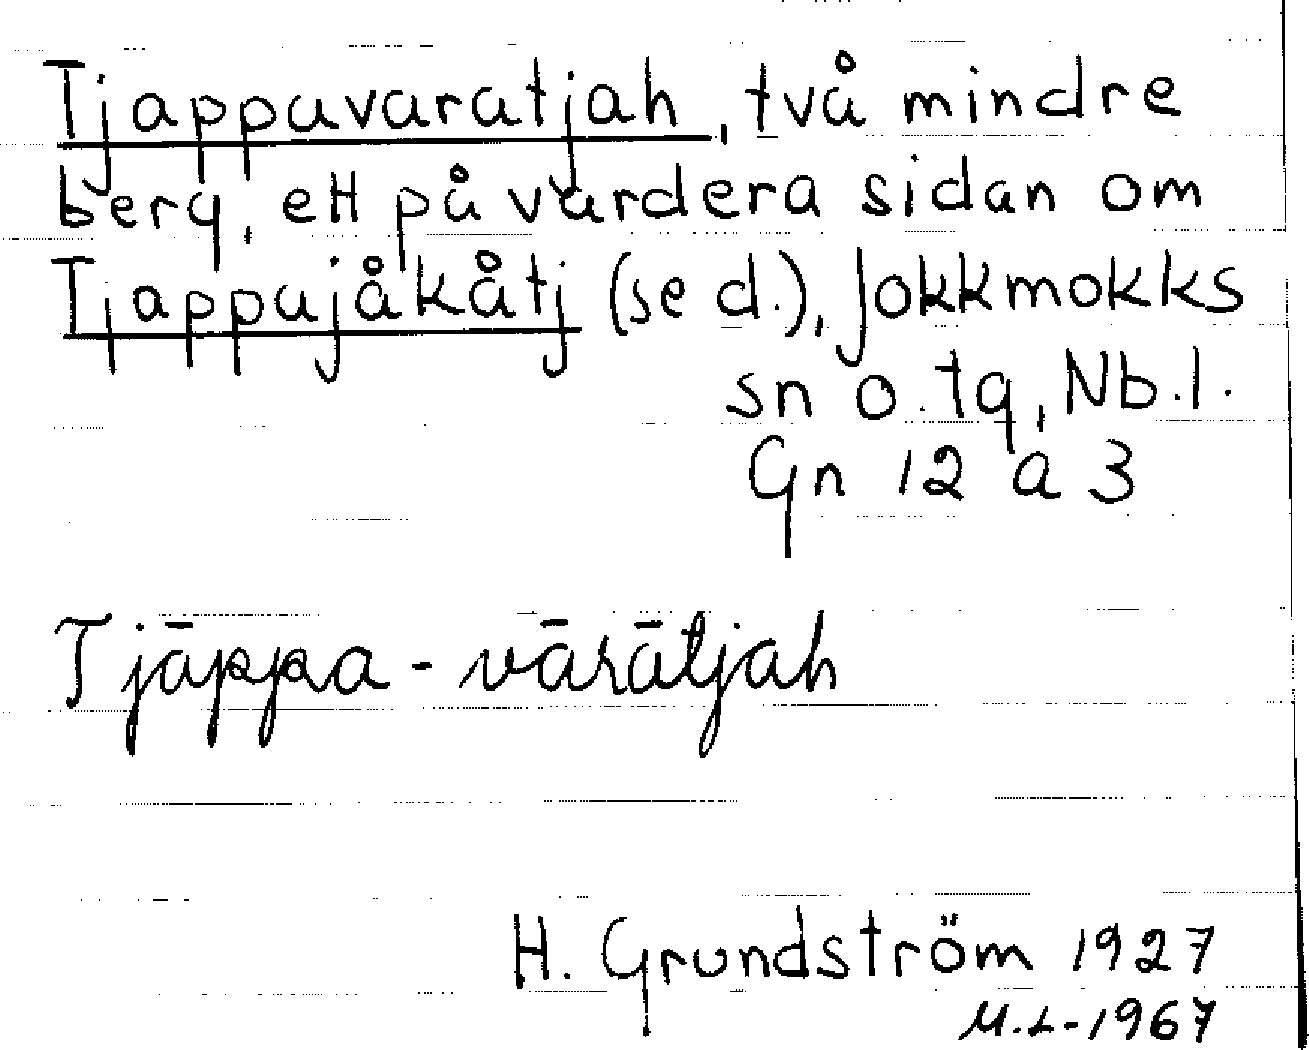 Tjappavaratjah, två mindre
berg, ett på vardera sidan om
Tjappajåkåtj (se d.), Jokkmokks
sn o. tg, Nb.l.
Gn 12 a 3
Tjāppa-vārātjah
H. Grundström 1927
M.L-1967